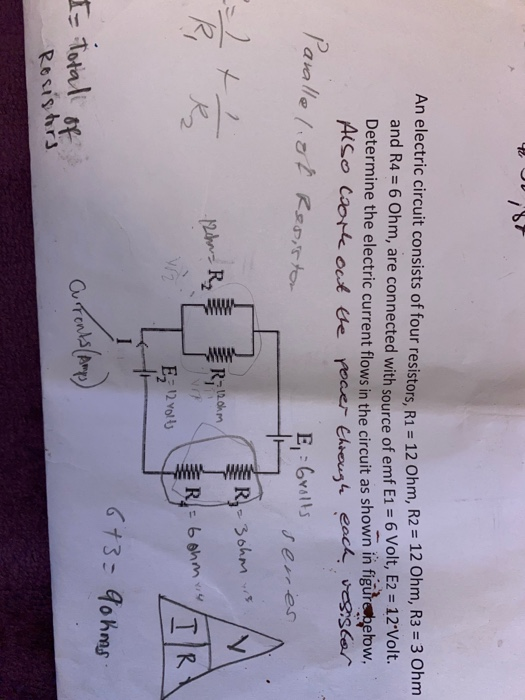 An electric circuit consists of four resistors, R1 = 12 Ohm, R2 = 12 Ohm, R3 = 3 Ohm
and R4 = 6 Ohm, are connected with source of emf E1 = 6 Volt, E2 = 12 Volt.
Determine the electric current flows in the circuit as shown in figure below.
Also work out the power through each resistor
Parallel of Resistor
series
E1 = 6volts
12ohm = R2
R1 = 12ohm
R3 = 3ohm
R4 = 6ohm
E2 = 12volts
I
= 1/R1 + 1/R2
Currents (Amps)
I = Total of
Resistors
6+3 = 9ohms
V
I R